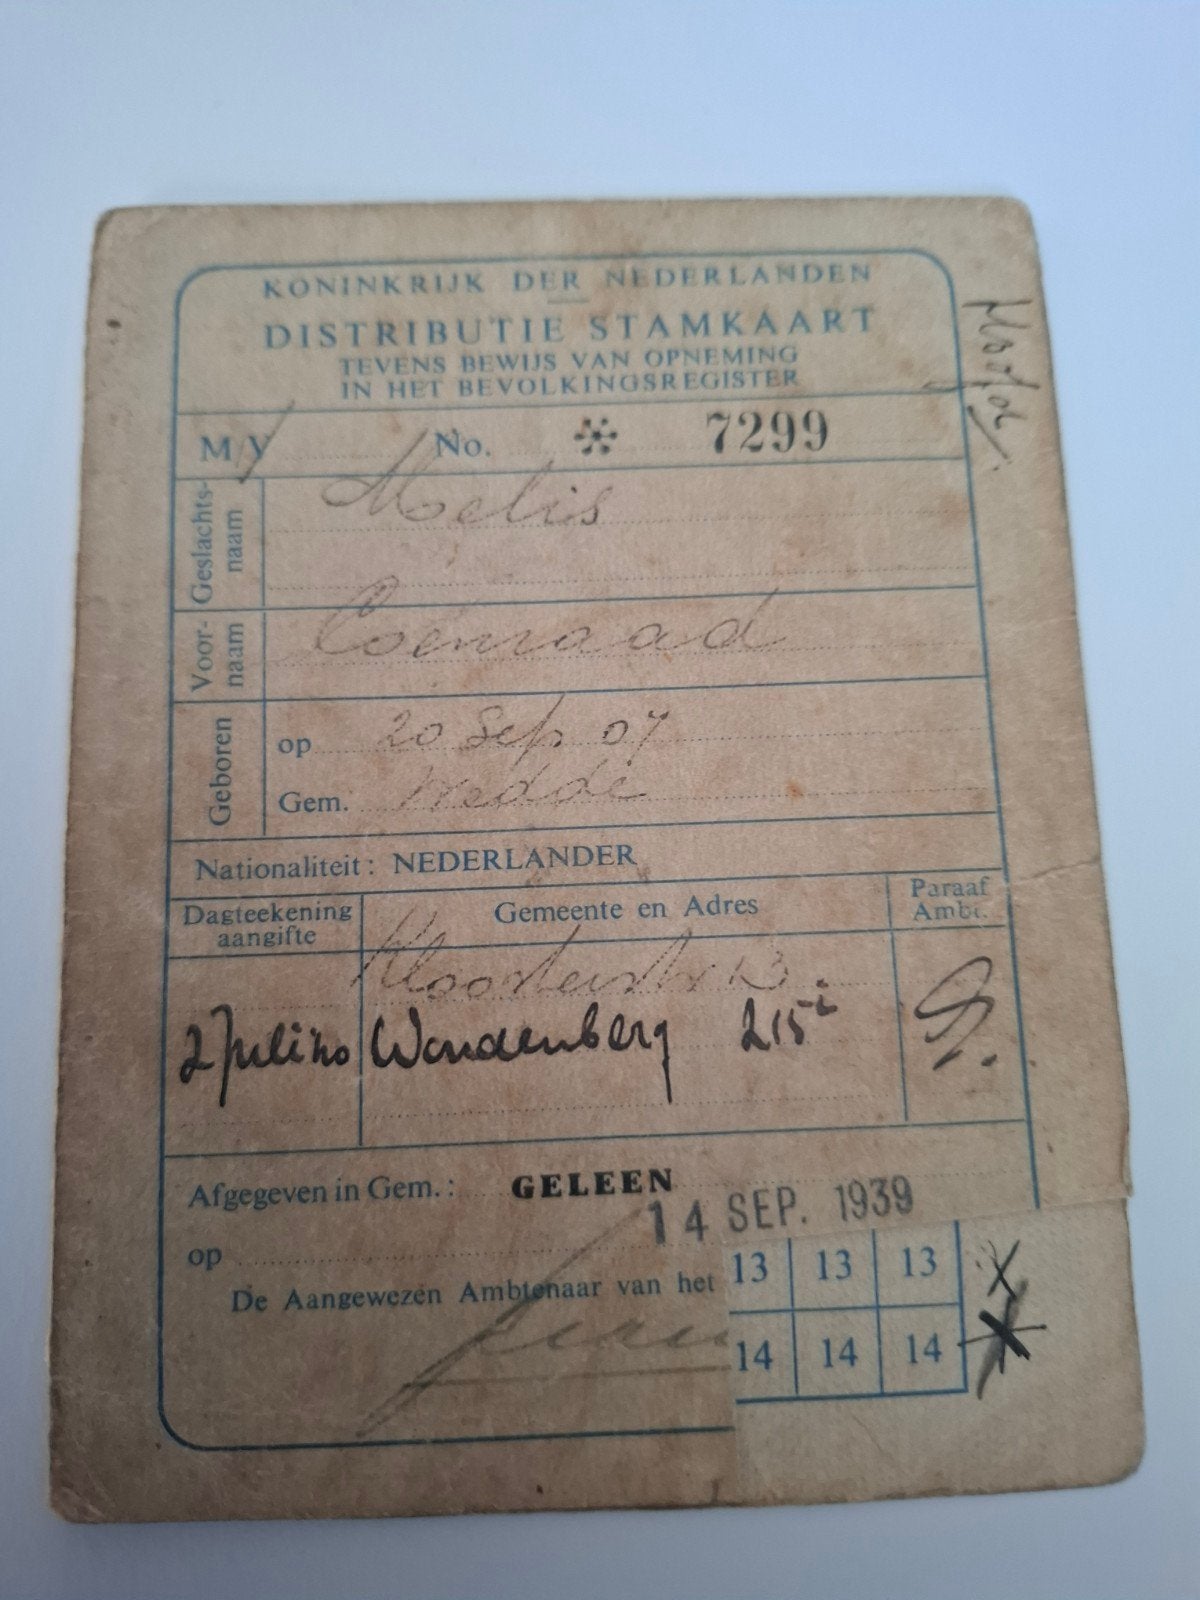 KONINKRIJK DER NEDERLANDEN
DISTRIBUTIE STAMKAART
TEVENS BEWIJS VAN OPNEMING
IN HET BEVOLKINGSREGISTER
Hoofd
M/V No. 7299
Geslachts-
naam
Melis
Voor-
naam
Coenraad
Geboren
op 20 Sep 07
Gem. Wedde
Nationaliteit: NEDERLANDER
Dagteekening
aangifte
Gemeente en Adres
Paraaf
Ambt.
Kloosterstr 13
2 Juli '40 Woudenberg 215
Afgegeven in Gem.: GELEEN
op 14 SEP. 1939
De Aangewezen Ambtenaar van het
13 13 13
14 14 14